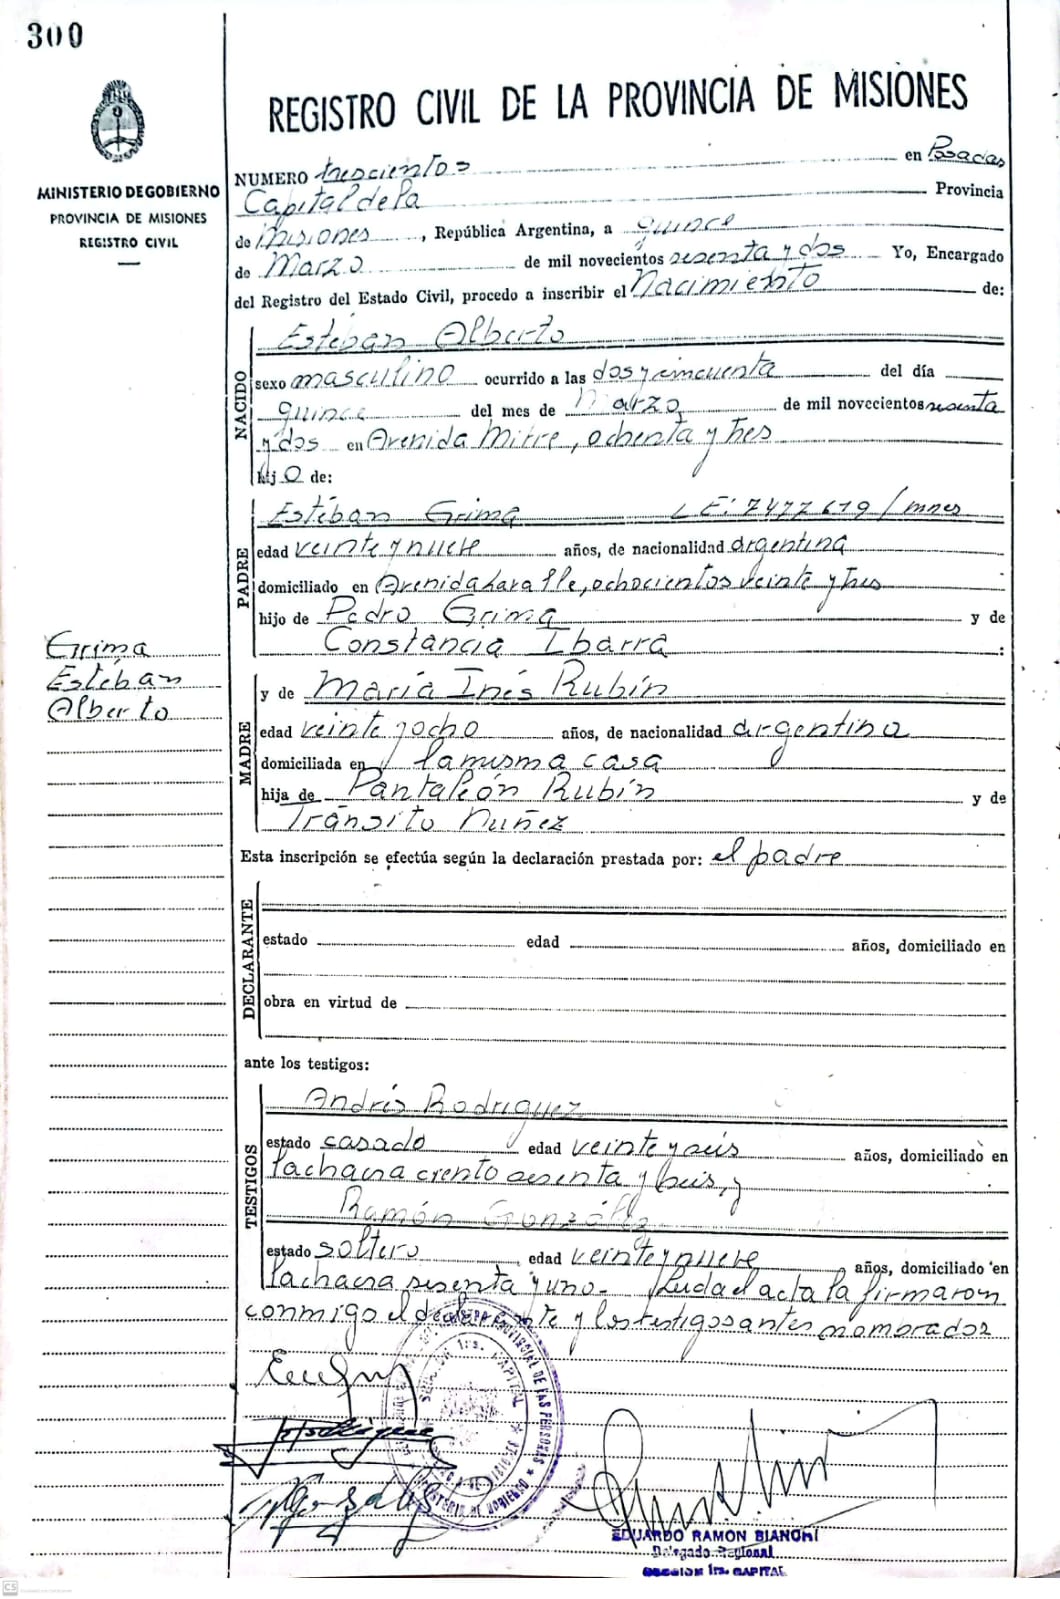 300
REGISTRO CIVIL DE LA PROVINCIA DE MISIONES
MINISTERIO DE GOBIERNO
PROVINCIA DE MISIONES
REGISTRO CIVIL
NUMERO trescientos en Posadas
Capital de la Provincia
de Misiones, República Argentina, a quince
de Marzo de mil novecientos sesenta y dos Yo, Encargado
del Registro del Estado Civil, procedo a inscribir el Nacimiento de:
NACIDO
Estéban Alberto
sexo masculino ocurrido a las dos y cincuenta del día
quince del mes de Marzo de mil novecientos sesenta
y dos en Avenida Mitre, ochenta y tres
hijo de:
PADRE
Estéban Grima L E: 7477679/mnes
edad veinte y nueve años, de nacionalidad argentina
domiciliado en Avenida Lavalle, ochocientos veinte y tres
hijo de Pedro Grima y de
Constancia Ibarra :
Grima
Estéban
Alberto
MADRE
y de María Inés Rubín
edad veinte y ocho años, de nacionalidad argentina
domiciliada en la misma casa
hija de Pantaleón Rubín y de
Tránsito Nuñez
Esta inscripción se efectúa según la declaración prestada por: el padre
DECLARANTE
estado edad años, domiciliado en
obra en virtud de
ante los testigos:
TESTIGOS
Andrés Rodriguez
estado casado edad veinte y seis años, domiciliado en
la chacra ciento sesenta y seis, y
Ramón González
estado soltero edad veinte y nueve años, domiciliado en
la chacra sesenta y uno. Leida el acta la firmaron
conmigo el declarante y los testigos antes nombrados
EDUARDO RAMON BIANCHI
Delegado Regional
SECCION 1ra. CAPITAL
CS